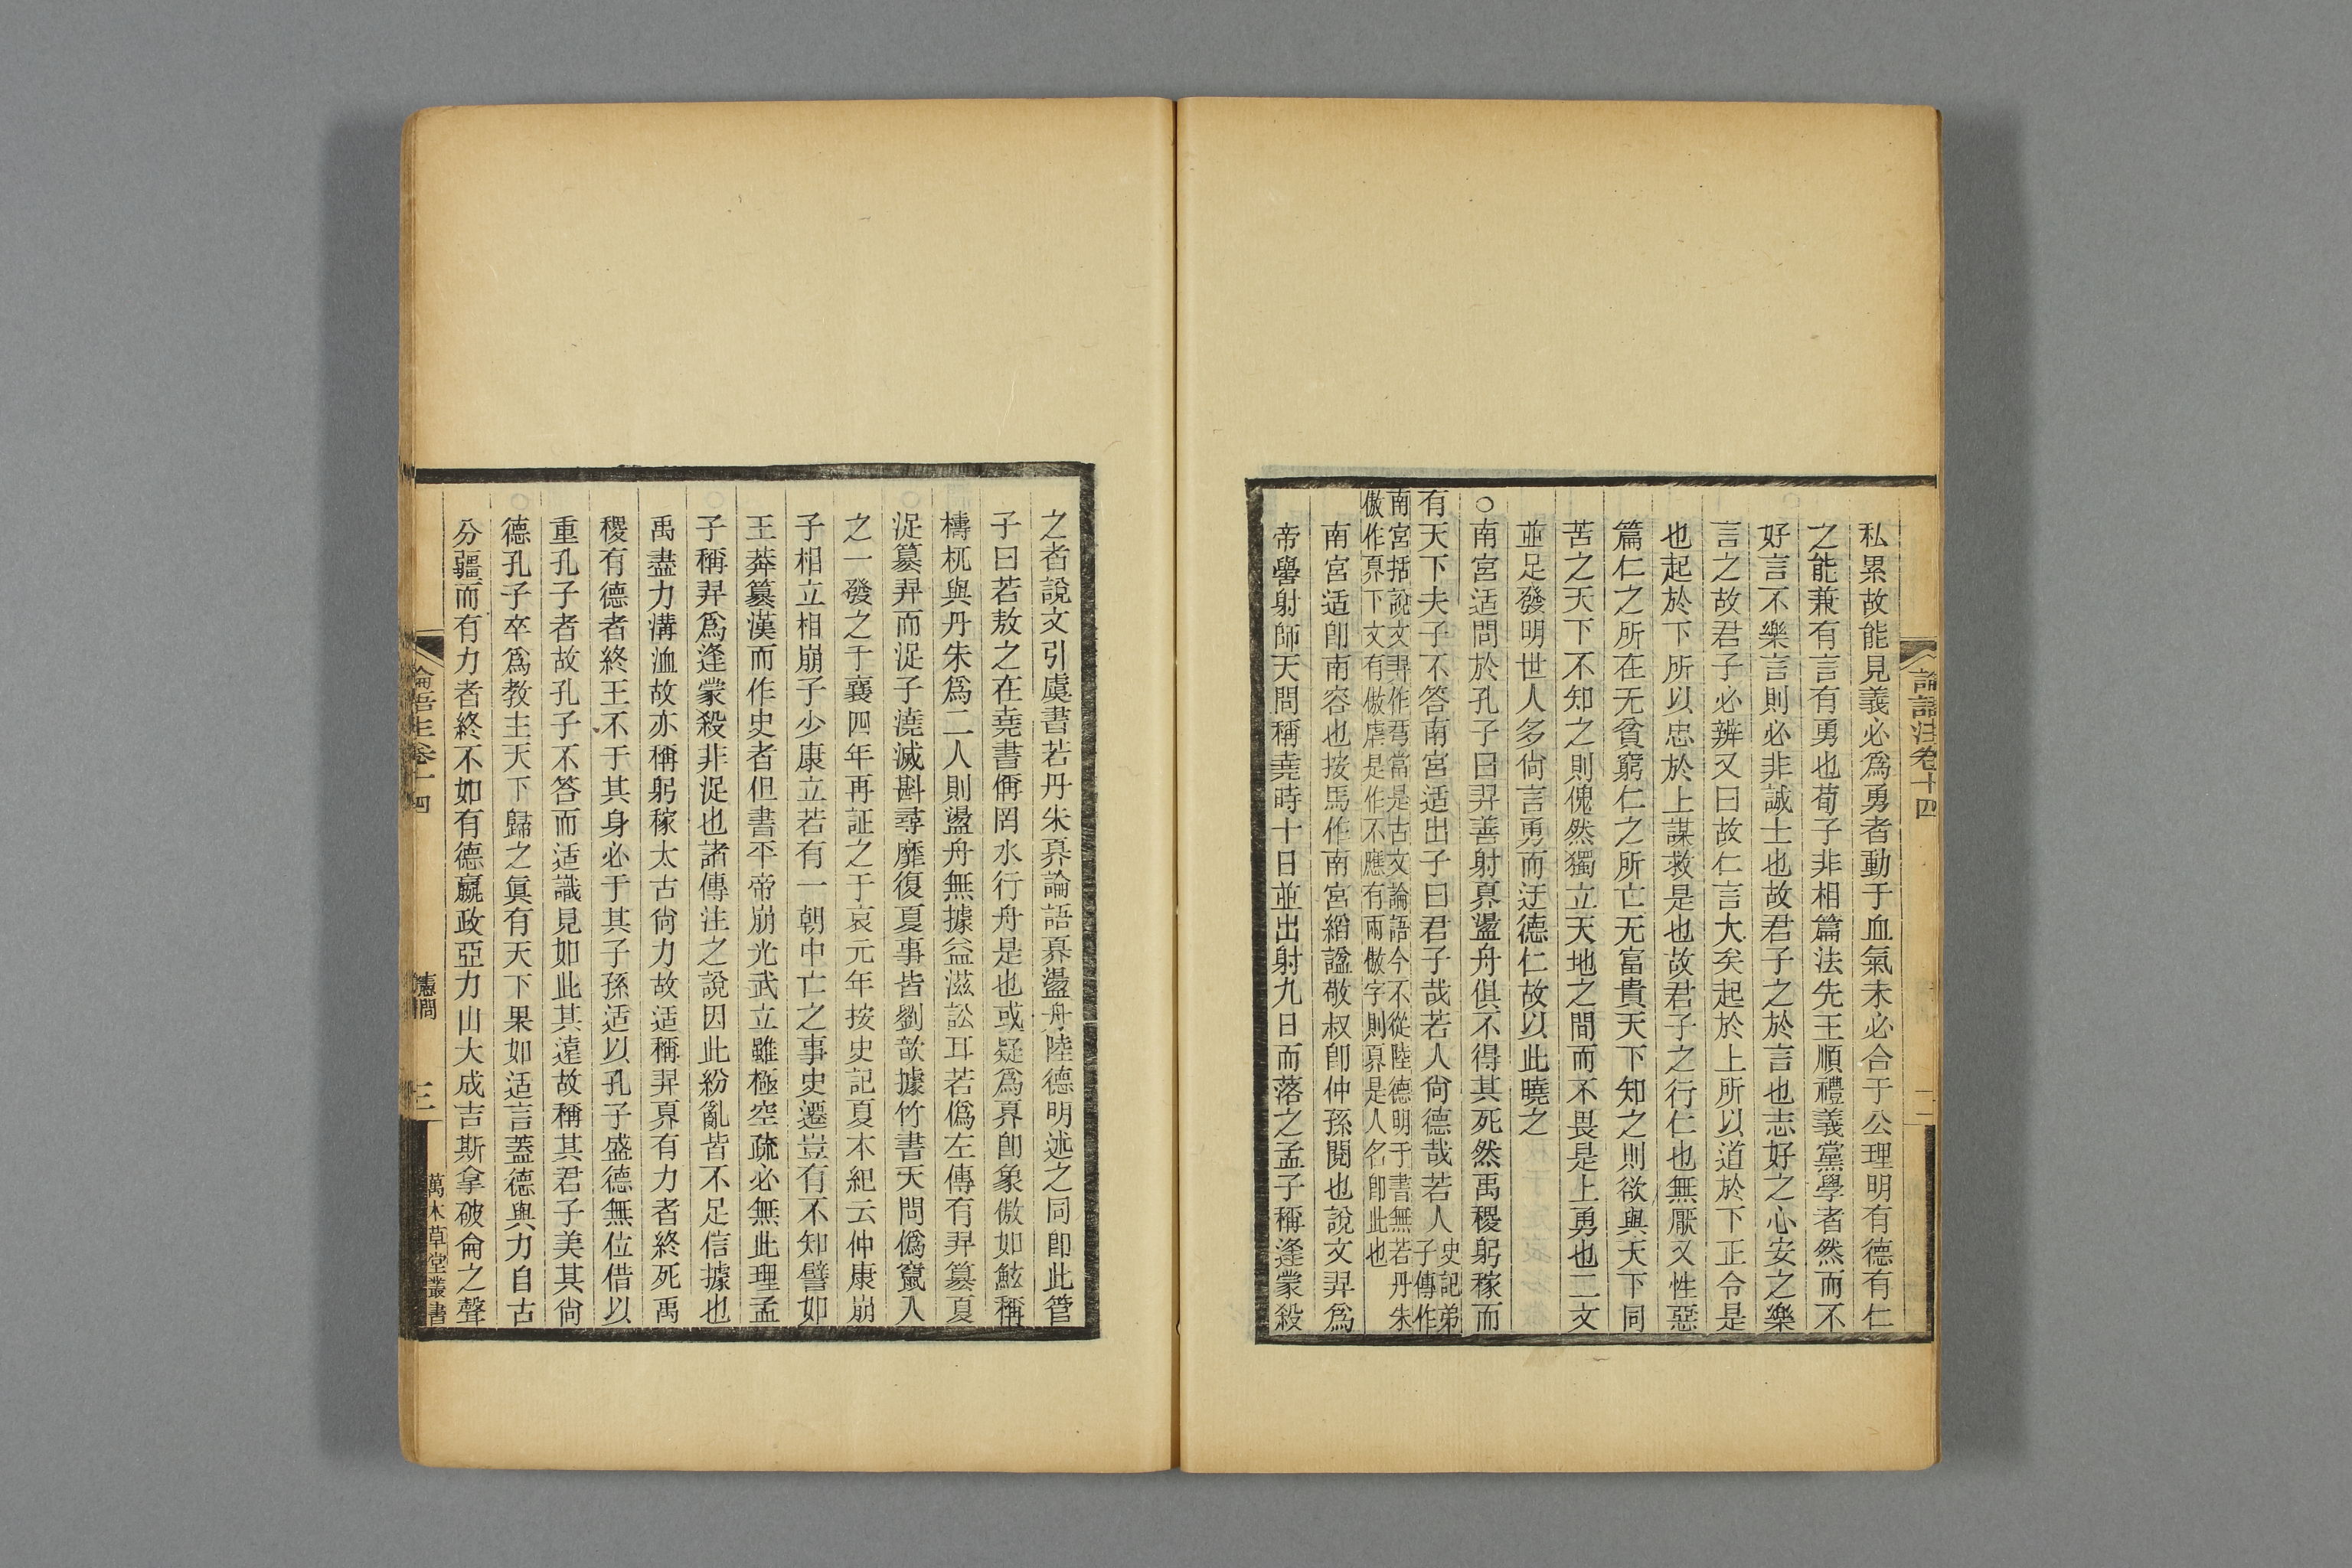 論語注卷十四
二
私累故能見義必爲勇者動于血氣未必合于公理明有德有仁
之能兼有言有勇也荀子非相篇法先王順禮義黨學者然而不
好言不樂言則必非誠士也故君子之於言也志好之心安之樂
言之故君子必辨又曰故仁言大矣起於上所以道於下正令是
也起於下所以忠於上謀救是也故君子之行仁也無厭又性惡
篇仁之所在无貧窮仁之所亡无富貴天下知之則欲與天下同
苦之天下不知之則傀然獨立天地之間而不畏是上勇也二文
並足發明世人多尙言勇而迂德仁故以此曉之
○南宮适問於孔子曰羿善射奡盪舟俱不得其死然禹稷躬稼而
有天下夫子不答南宮适出子曰君子哉若人尙德哉若人
史記弟
子傳作
南宮括說文羿作𢏗當是古文論語今不從陸德明于書無若丹朱
傲作奡下文有傲虐是作不應有兩傲字則奡是人名卽此也
南宮适卽南容也按馬作南宮縚諡敬叔卽仲孫閱也說文羿爲
帝嚳射師天問稱堯時十日並出射九日而落之孟子稱逢蒙殺
之者說文引虞書若丹朱奡論語奡盪舟陸德明述之同卽此管
子曰若敖之在堯書偁罔水行舟是也或疑爲奡卽象傲如鯀稱
檮杌與丹朱爲二人則盪舟無據益滋訟耳若僞左傳有羿篡夏
浞篡羿而浞子澆滅斟尋靡復夏事皆劉歆據竹書天問僞竄入
之一發之于襄四年再証之于哀元年按史記夏本紀云仲康崩
子相立相崩子少康立若有一朝中亡之事史遷豈有不知譬如
王莽篡漢而作史者但書平帝崩光武立雖極空疏必無此理孟
子稱羿爲逢蒙殺非浞也諸傳注之說因此紛亂皆不足信據也
禹盡力溝洫故亦稱躬稼太古尙力故适稱羿奡有力者終死禹
稷有德者終王不于其身必于其子孫适以孔子盛德無位借以
重孔子者故孔子不答而适識見如此其遠故稱其君子美其尙
德孔子卒爲教主天下歸之眞有天下果如适言蓋德與力自古
分疆而有力者終不如有德嬴政亞力山大成吉斯拿破侖之聲
論語注卷十四
憲問
三
萬木草堂叢書